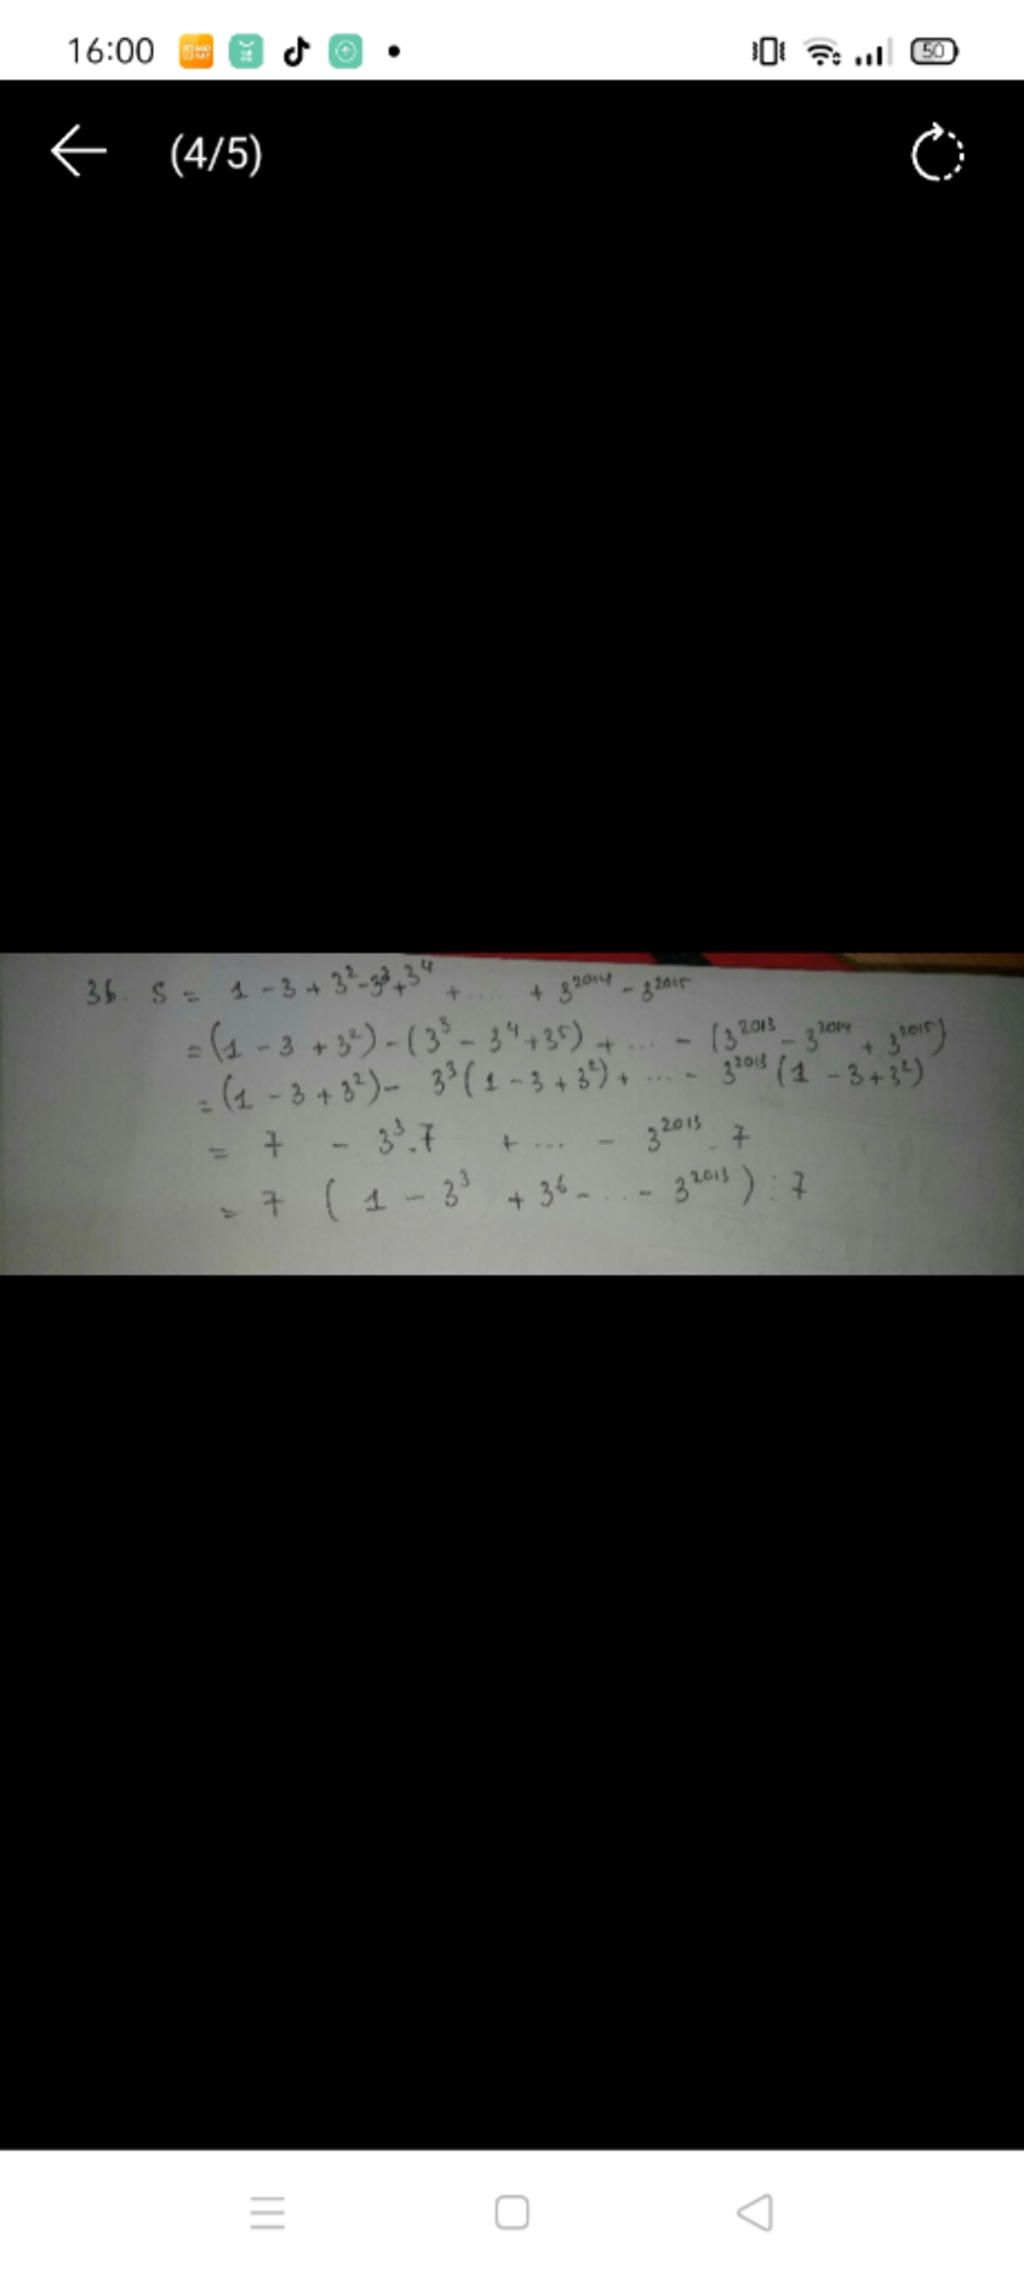 16:00
50
(4/5)
36. S = 1 - 3 + 3² - 3³ + 3⁴ + .... + 3²⁰¹⁴ - 3²⁰¹⁵
= (1 - 3 + 3²) - (3³ - 3⁴ + 3⁵) + ... - (3²⁰¹³ - 3²⁰¹⁴ + 3²⁰¹⁵)
= (1 - 3 + 3²) - 3³ (1 - 3 + 3²) + ... - 3²⁰¹³ (1 - 3 + 3²)
= 7 - 3³.7 + ... - 3²⁰¹³.7
= 7 ( 1 - 3³ + 3⁶ - ... - 3²⁰¹³ ) : 7